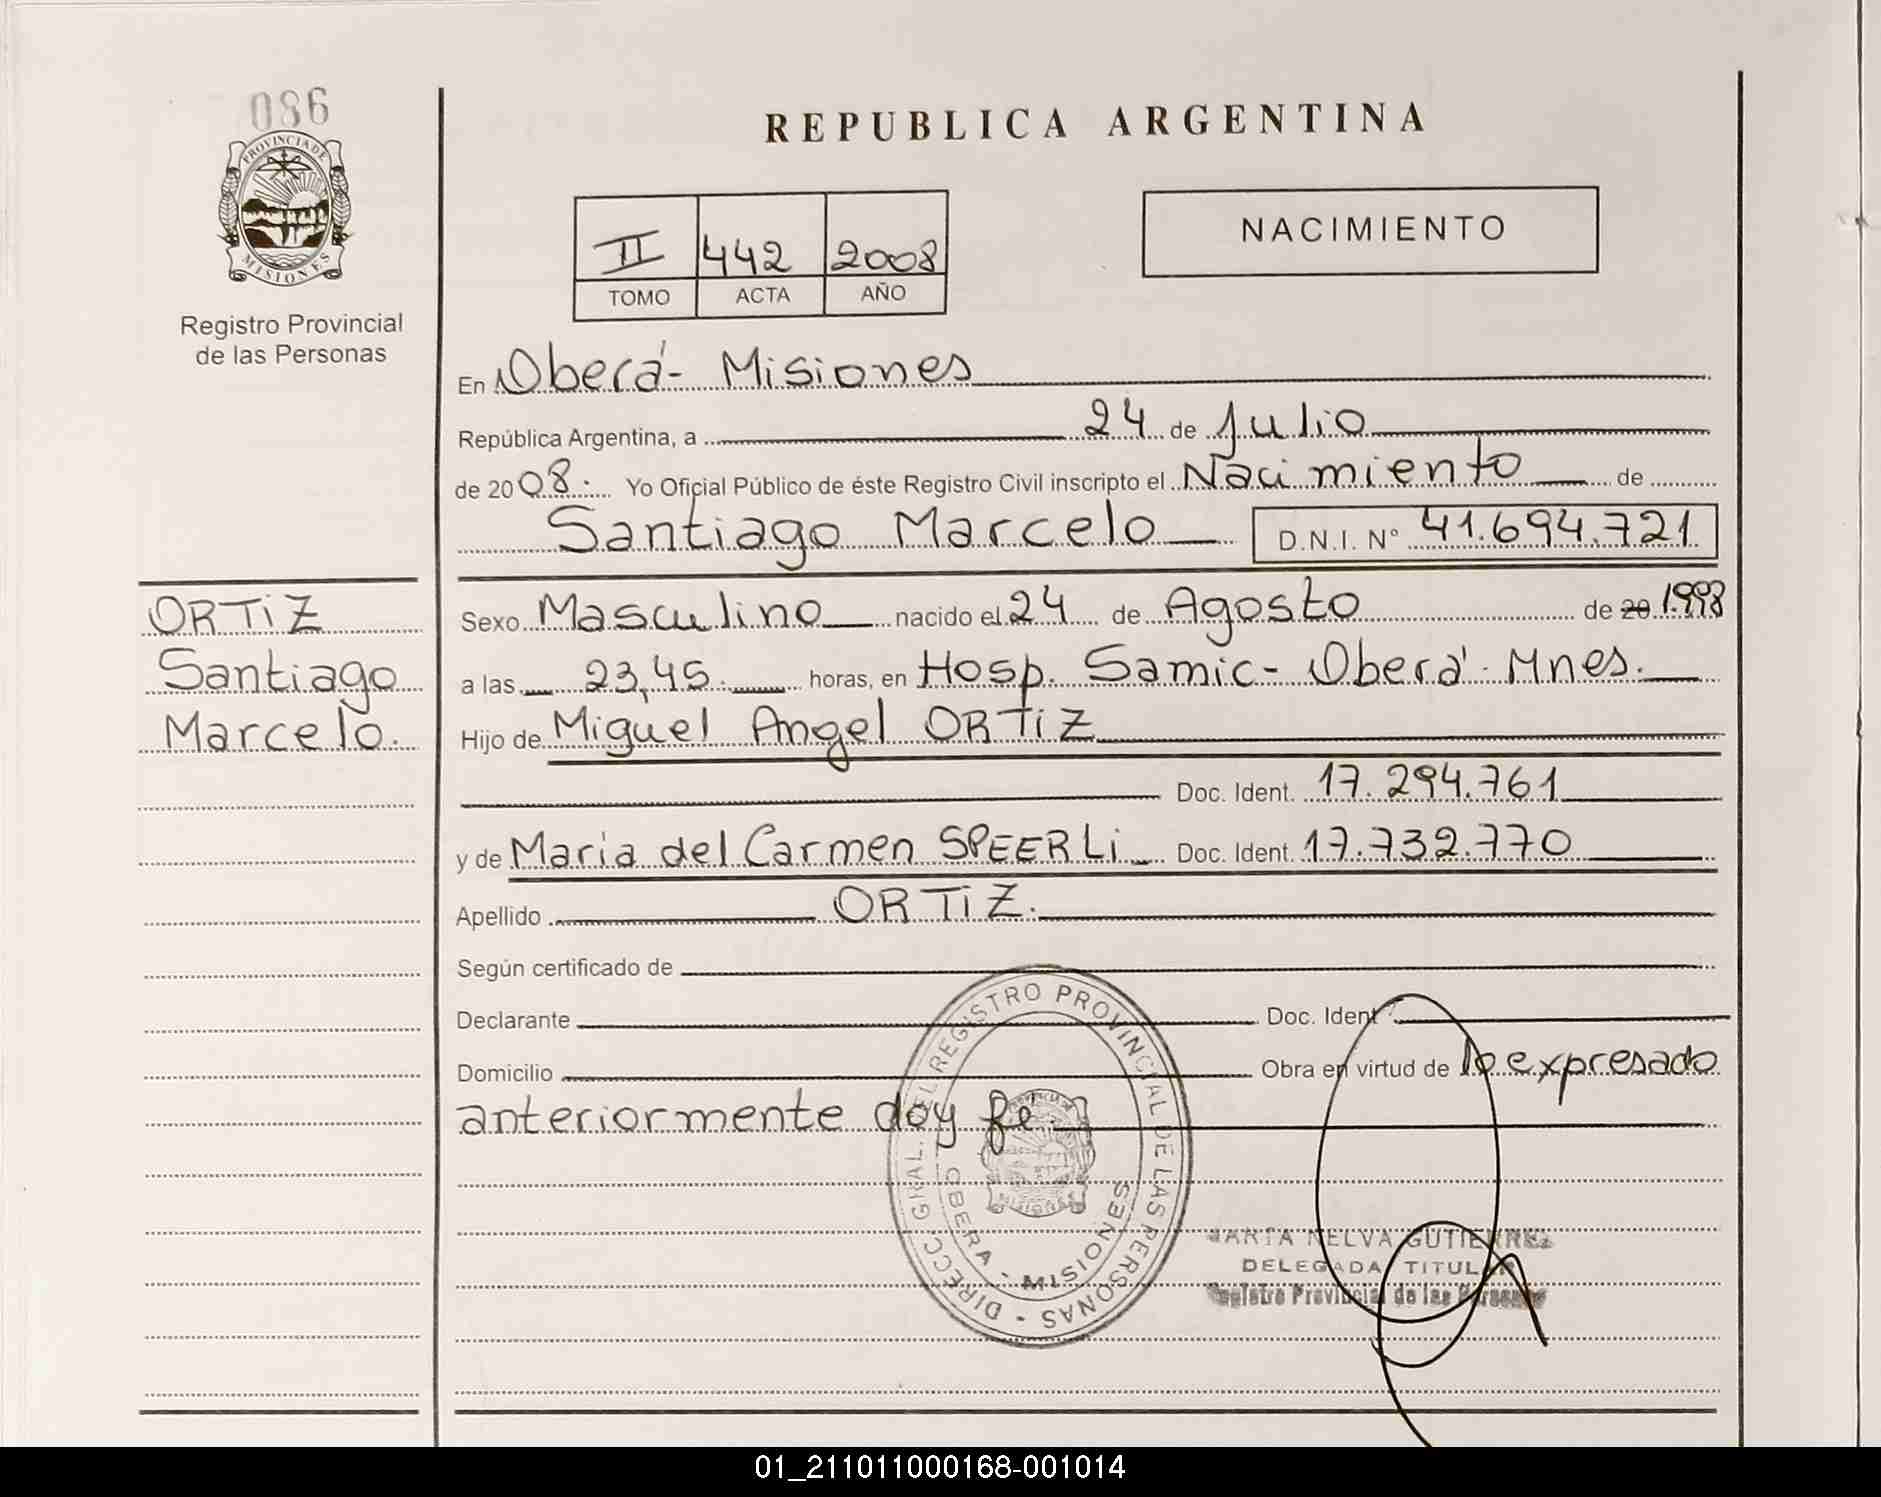 086
PROVINCIA DE
MISIONES
Registro Provincial
de las Personas
REPUBLICA ARGENTINA
II 442 2008
TOMO ACTA AÑO
NACIMIENTO
En Oberá- Misiones
República Argentina, a 24 de Julio
de 2008. Yo Oficial Público de éste Registro Civil inscripto el Nacimiento de
Santiago Marcelo D.N.I. N° 41.694.721
ORTIZ
Santiago
Marcelo.
Sexo Masculino nacido el 24 de Agosto de 20 1.998
a las 23,45. horas, en Hosp. Samic- Oberá- Mnes.
Hijo de Miguel Angel ORTIZ
Doc. Ident. 17.294.761
y de Maria del Carmen SPEERLi Doc. Ident. 17.732.770
Apellido ORTIZ.
Según certificado de
Declarante Doc. Ident
Domicilio Obra en virtud de lo expresado
anteriormente doy fe.
DIRECC. GRAL. DEL REGISTRO PROVINCIAL DE LAS PERSONAS -
OBERA - MISIONES
MARIA NELVA GUTIERREZ
DELEGADA TITULAR
Registro Provincial de las Personas
01_211011000168-001014